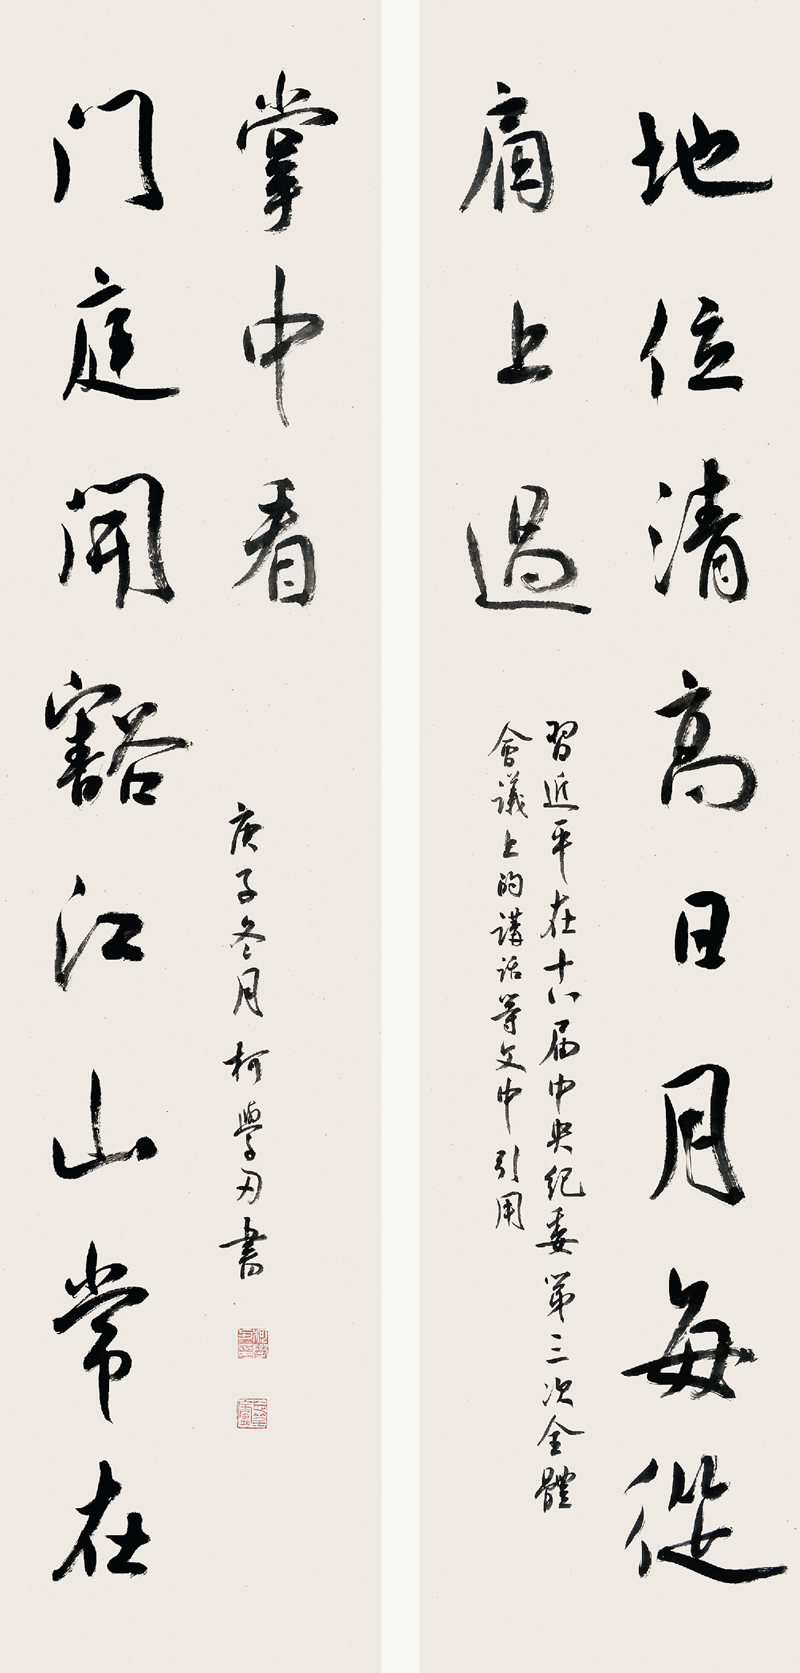 地位清高日月每從
肩上過
習近平在十八届中央纪委第三次全體
會議上的講話等文中引用
门庭開豁江山常在
掌中看
庚子冬月柯學刃書